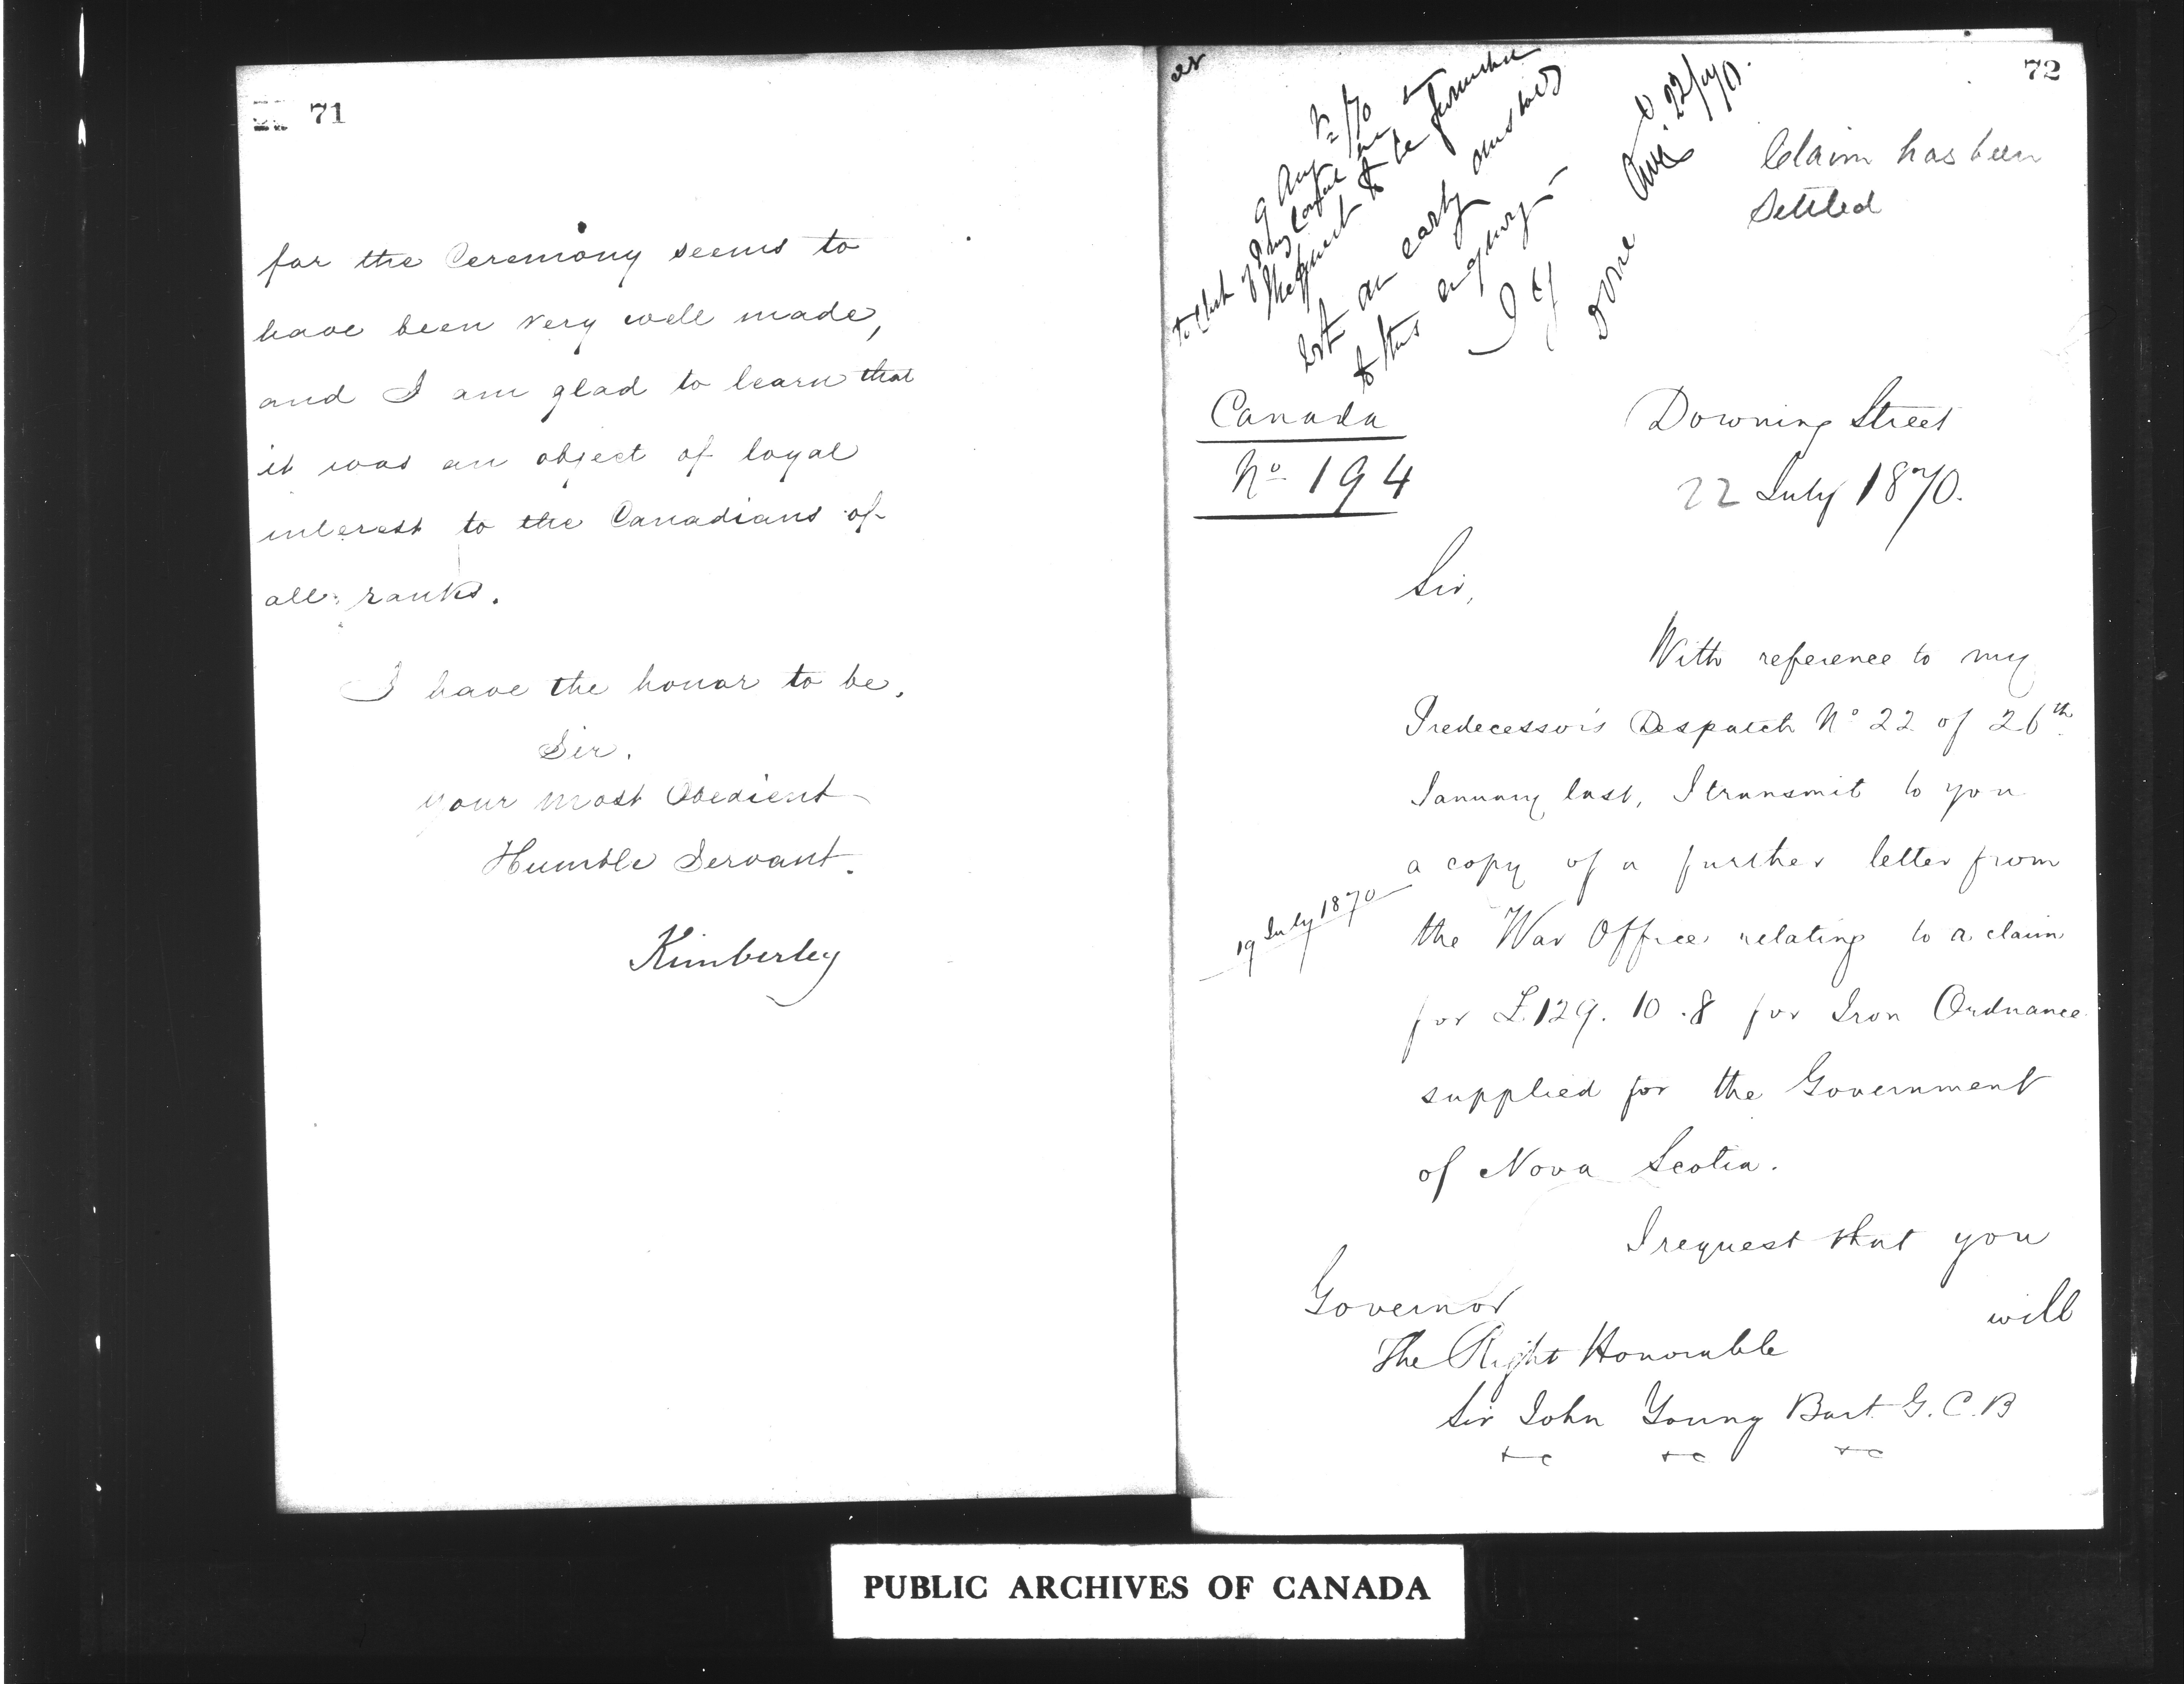 71
for the Ceremony seems to
have been very well made,
and I am glad to learn that
it was an object of loyal
interest to the Canadians of
all ranks.
I have the honor to be,
Sir.
your most Obedient
Humble Servant.
Kimberley
72
9 Aug
request to be
with an early answer
to this enquiry
Done Aug. 22/70.
Claim has been
Settled
Canada
No 194
Downing Street
22 July 1870.
Sir,
With reference to my
Predecessor's Despatch No 22 of 26th
January last, I transmit to you
a copy of a further letter from
19 July 1870
the War Office relating to a claim
for £129.10.8 for Iron Ordnance
supplied for the Government
of Nova Scotia.
I request that you
will
Governor
The Right Honorable
Sir John Young Bart G.C.B
&c &c &c
PUBLIC ARCHIVES OF CANADA